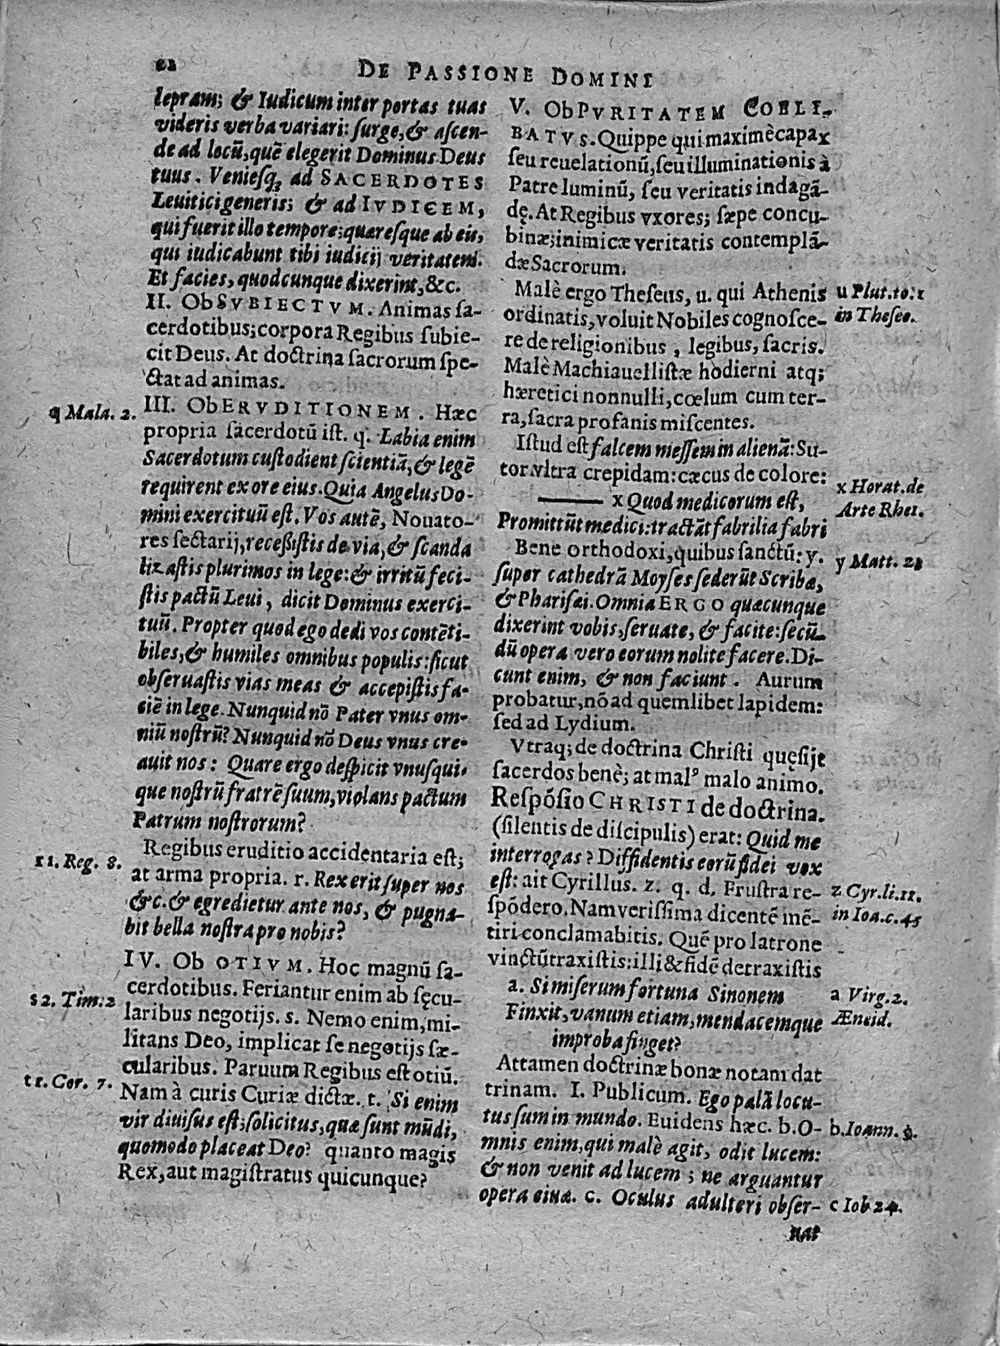 DE PASSIONE DOMINI
lepram; & Iudicum inter portas tuas
videris verba variari: surge, & ascen-
de ad locũ, quẽ elegerit Dominus Deus
tuus. Veniesq; ad SACERDOTES
Leuitici generis; & ad IVDICEM,
qui fuerit illo tempore; quæresque ab eis,
qui iudicabunt tibi iudicij veritatem.
Et facies, quodcunque dixerint, &c.
II. Ob SVBIECTVM. Animas sa-
cerdotibus; corpora Regibus subie-
cit Deus. At doctrina sacrorum spe-
ctat ad animas.
q Mala. 2.
III. Ob ERVDITIONEM. Hæc
propria sacerdotũ ist. q. Labia enim
Sacerdotum custodient scientiã, & legẽ
requirent ex ore eius. Quia Angelus Do-
mini exercituũ est. Vos autẽ, Nouato-
res sectarij, recessistis de via, & scanda
lizastis plurimos in lege: & irritũ feci-
stis pactũ Leui, dicit Dominus exerci-
tuũ. Propter quod ego dedi vos contẽti-
biles, & humiles omnibus populis: sicut
obseruastis vias meas & accepistis fa-
ciẽ in lege. Nunquid nõ Pater vnus om-
niũ nostrũ? Nunquid nõ Deus vnus cre-
auit nos: Quare ergo despicit vnusqui-
que nostrũ fratrẽ suum, violans pactum
Patrum nostrorum?
r 1. Reg. 8.
Regibus eruditio accidentaria est;
at arma propria. r. Rex erit super nos
&c. & egredietur ante nos, & pugna-
bit bella nostra pro nobis?
IV. Ob OTIVM. Hoc magnũ sa-
cerdotibus. Feriantur enim ab sęcu-
s 2. Tim: 2
laribus negotijs. s. Nemo enim, mi-
litans Deo, implicat se negotijs sæ-
cularibus. Paruum Regibus est otiũ.
t 1. Cor. 7.
Nam à curis Curiæ dictæ. t. Si enim
vir diuisus est; solicitus, quæ sunt mũdi,
quomodo placeat Deo? quanto magis
Rex, aut magistratus quicunque?
V. Ob PVRITATEM COELI-
BATVS. Quippe qui maximè capax
seu reuelationũ, seu illuminationis à
Patre luminũ, seu veritatis indagã-
dę. At Regibus vxores; sæpe concu-
binæ; inimicæ veritatis contemplã-
dæ Sacrorum.
Malè ergo Theseus, u. qui Athenis
u Plut. to: 1
ordinatis, voluit Nobiles cognosce-
in Theseo.
re de religionibus, legibus, sacris.
Malè Machiauellistæ hodierni atq;
hæretici nonnulli, cœlum cum ter-
ra, sacra profanis miscentes.
Istud est falcem messem in alienã: Su-
tor vltra crepidam: cæcus de colore:
x Horat. de
Arte Rhet.
x Quod medicorum est,
Promittũt medici: tractãt fabrilia fabri
Bene orthodoxi, quibus sanctũ: y.
y Matt. 23
super cathedrã Moyses sederũt Scribæ,
& Pharisæi. Omnia ERGO quæcunque
dixerint vobis, seruate, & facite: secũ-
dũ opera vero eorum nolite facere. Di-
cunt enim, & non faciunt. Aurum
probatur, nõ ad quemlibet lapidem:
sed ad Lydium.
Vtraq; de doctrina Christi quęsijt
sacerdos benè; at malꝰ malo animo.
Respõsio CHRISTI de doctrina.
(silentis de discipulis) erat: Quid me
interrogas? Diffidentis eorũ fidei vox
est: ait Cyrillus. z. q. d. Frustra re-
z Cyr. li. 11.
spõdero. Nam verissima dicentẽ mẽ-
in Ioa. c. 45
tiri conclamabitis. Quẽ pro latrone
vinctũ traxistis: illi & fidẽ detraxistis
a. Si miserum fortuna Sinonem
a Virg. 2.
Finxit, vanum etiam, mendacemque
Æneid.
improba finget?
Attamen doctrinæ bonæ notam dat
trinam. I. Publicum. Ego palã locu-
tus sum in mundo. Euidens hæc. b. O-
b. Ioann. 3.
mnis enim, qui malè agit, odit lucem:
& non venit ad lucem; ne arguantur
opera eius. c. Oculus adulteri obser-
c Iob 24.
uat